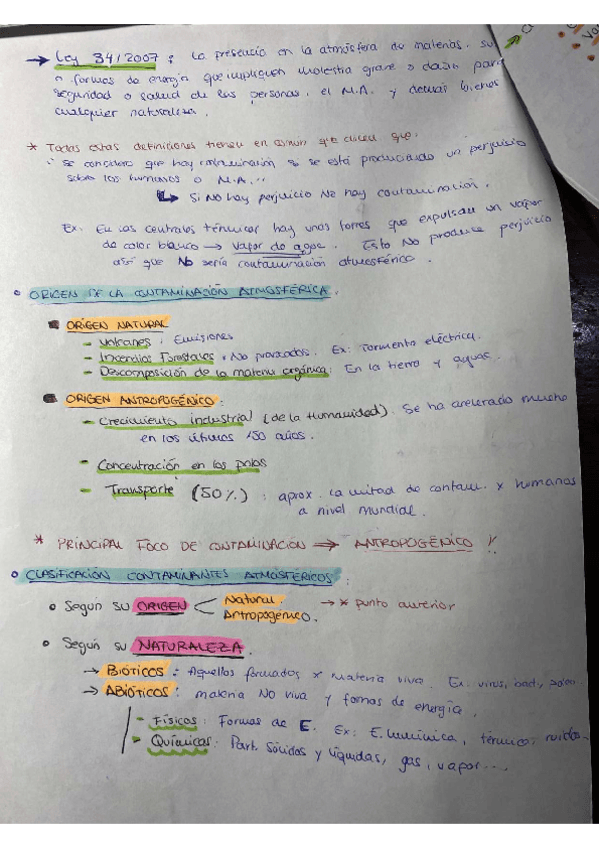 → Ley 34/2007 : La presencia en la atmósfera de materias, su
o formas de energía que impliquen molestia grave o daño para
seguridad o salud de las personas, el M.A. y demás bienes
cualquier naturaleza.
* Todas estas definiciones tienen en común que dicen que:
"Se considera que hay contaminación si se está produciendo un perjuicio
sobre los humanos o M.A."
↳ Si No hay perjuicio No hay contaminación.
Ex. En las centrales térmicas hay unas torres que expulsan un vapor
de color blanco → vapor de agua. Esto No produce perjuicio
así que No sería contaminación atmosférica.
• ORIGEN DE LA CONTAMINACIÓN ATMOSFÉRICA.
ORIGEN NATURAL
- Volcanes. Emisiones
- Incendios forestales. No provocados. Ex: Tormenta eléctrica.
- Descomposición de la materia orgánica: En la tierra y aguas.
ORIGEN ANTROPOGÉNICO:
- Crecimiento industrial (de la Humanidad). Se ha acelerado mucho
en los últimos 150 años.
- Concentración en los polos
- Transporte (50%) : aprox. La mitad de contam. x humanos
a nivel mundial.
* PRINCIPAL FOCO DE CONTAMINACIÓN → ANTROPOGÉNICO !!
• CLASIFICACIÓN CONTAMINANTES ATMOSFÉRICOS :
• Según su ORIGEN < Natural. → * punto anterior
Antropogénico.
• Según su NATURALEZA.
→ BIÓTICOS : Aquellos formados x materia viva. Ex. virus, bact,
→ ABIÓTICOS : materia No viva y formas de energía.
- Físicos : Formas de E. Ex: E. lumínica, térmica, ruidos..
- Químicos : Part. sólidas y líquidas, gas, vapor....